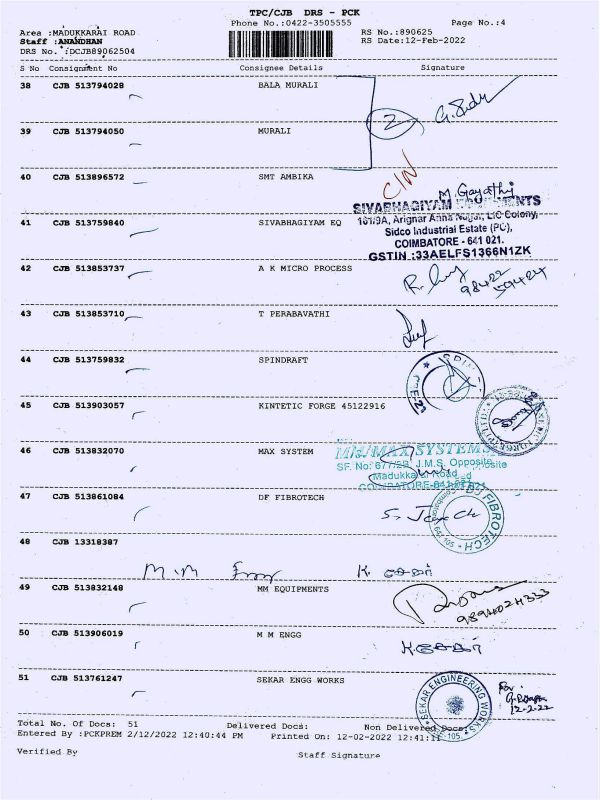 TPC/CJB DRS - PCK
Phone No.:0422-3505555 Page No.:4
Area :MADUKKARAI ROAD RS No.:890625
Staff :ANANDHAN RS Date:12-Feb-2022
DRS No. :DCJB89062504
S No Consignment No Consignee Details Signature
38 CJB 513794028 BALA MURALI
2
39 CJB 513794050 MURALI
40 CJB 513896572 SMT AMBIKA
M. Gayathri
SIVABHAGIYAM EQUIPMENTS
161/9A, Arignar Anna Nagar, LIC Colony,
41 CJB 513759840 SIVABHAGIYAM EQ
Sidco Industrial Estate (PC),
COIMBATORE - 641 021.
GSTIN :33AELFS1366N1ZK
42 CJB 513853737 A K MICRO PROCESS
98422
59424
43 CJB 513853710 T PERABAVATHI
44 CJB 513759832 SPINDRAFT
45 CJB 513903057 KINTETIC FORGE 45122916
46 CJB 513832070 MAX SYSTEM
MAX SYSTEMS
SF. No: 677/2B, J.M.S. Opposite
Madukkarai Road
47 CJB 513861084 DF FIBROTECH
FIBROTECH
48 CJB 13318387
49 CJB 513832148 MM EQUIPMENTS
9894024333
50 CJB 513906019 M M ENGG
51 CJB 513761247 SEKAR ENGG WORKS
SEKAR ENGINEERING WORKS
For
12-2-22
Total No. Of Docs: 51 Delivered Docs: Non Delivered Docs:
Entered By :PCKPREM 2/12/2022 12:40:44 PM Printed On: 12-02-2022 12:41:11
Verified By Staff Signature